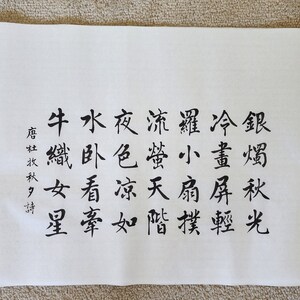 銀燭秋光
冷畫屏輕
羅小扇撲
流螢天階
夜色凉如
水卧看牽
牛織女星
唐杜牧秋夕詩